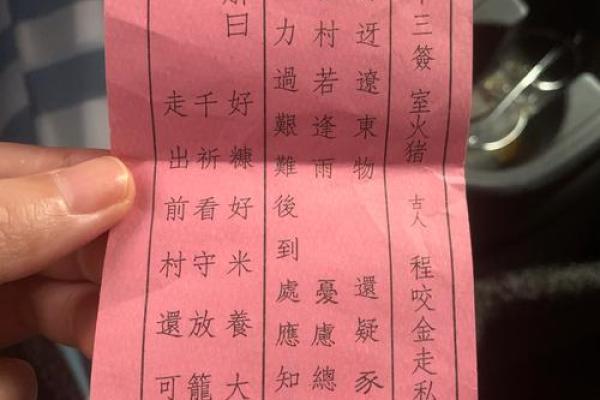 三簽 室火猪 古人 程咬金走私
迓遼東物 還疑豕
村若逢雨 憂慮總
力過艱難後到處應知
曰 好糠好米養大
千祈看守放籠
走出前村還可